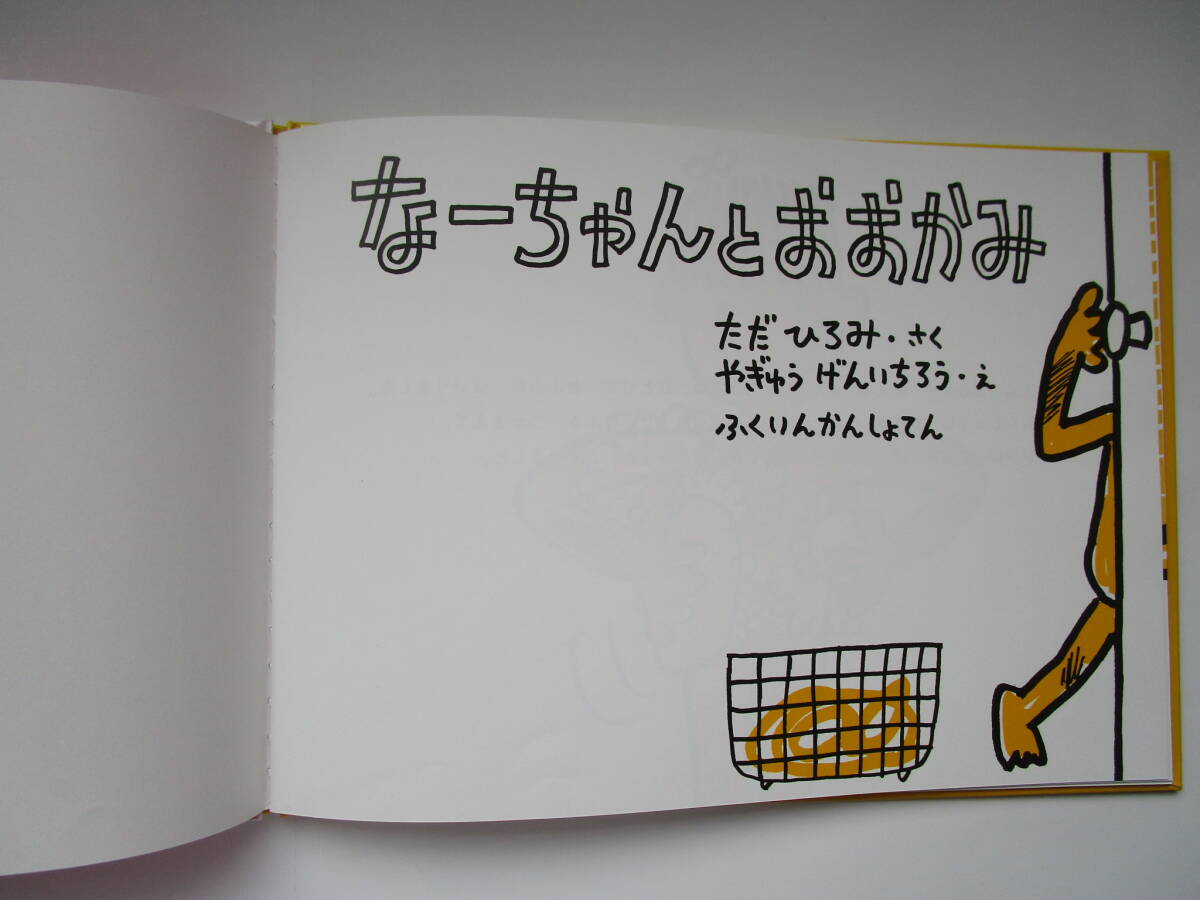 なーちゃんとおおかみ
ただ ひろみ・さく
やぎゅう げんいちろう・え
ふくいんかんしょてん